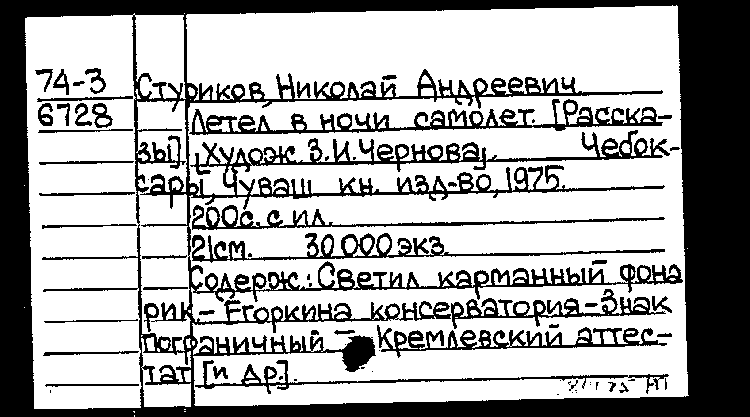 74-3 Стуриков, Николай Андреевич.
6728 Летел в ночи самолет. [Расска-
зы]. [Худож. З. И. Чернова]. Чебок-
сары, Чуваш. кн. изд-во, 1975.
200с. с ил.
21см. 30 000 экз.
Содерж.: Светил карманный фона
рик.- Егоркина консерватория.-Знак
пограничный - Кремлевский аттес-
тат [и др].